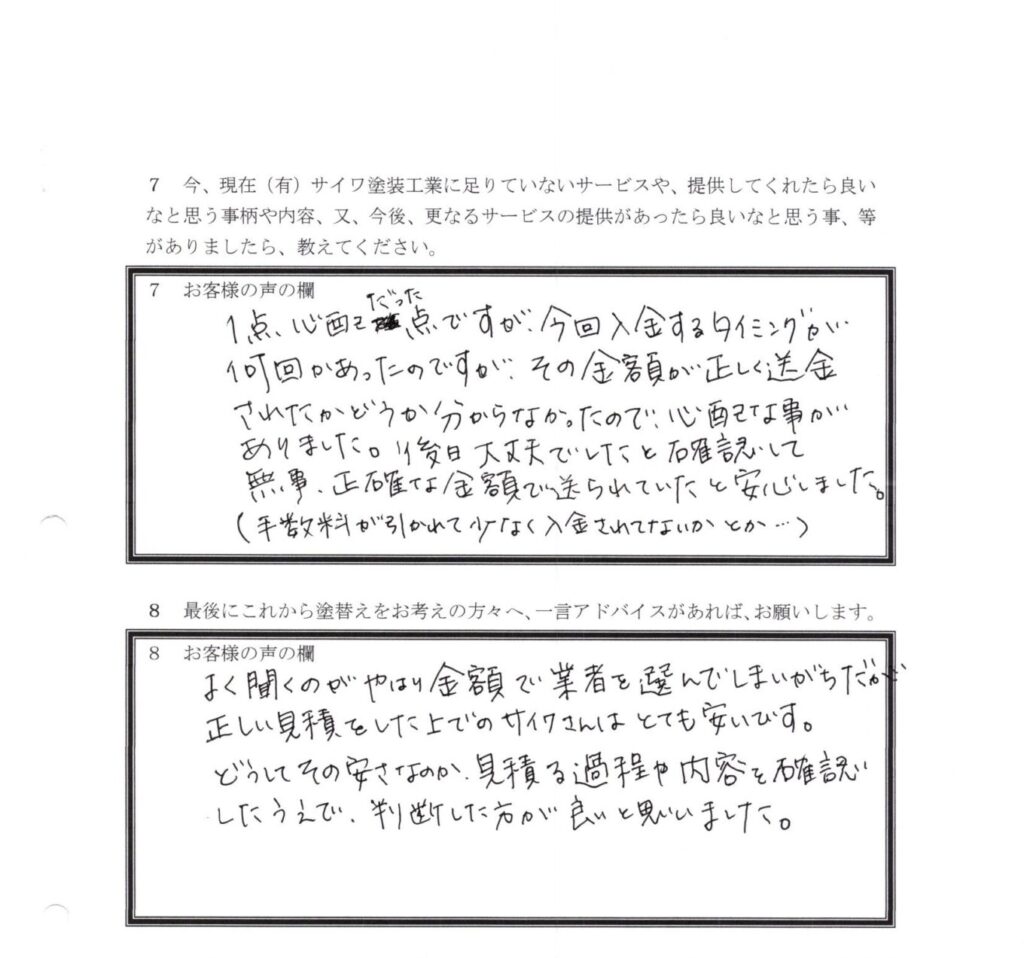 7 今、現在（有）サイワ塗装工業に足りていないサービスや、提供してくれたら良い
なと思う事柄や内容、又、今後、更なるサービスの提供があったら良いなと思う事、等
がありましたら、教えてください。
7 お客様の声の欄
1点、心配だった点ですが、今回入金するタイミングが
何回かあったのですが、その金額が正しく送金
されたかどうか分からなかったので、心配な事が
ありました。後日大丈夫でしたと確認して
無事、正確な金額で送られていたと安心しました。
(手数料が引かれて少なく入金されてないかとか…)
8 最後にこれから塗替えをお考えの方々へ、一言アドバイスがあれば、お願いします。
8 お客様の声の欄
よく聞くのがやはり金額で業者を選んでしまいがちだが
正しい見積をした上でのサイワさんはとても安いです。
どうしてその安さなのか、見積る過程や内容を確認
したうえで、判断した方が良いと思いました。